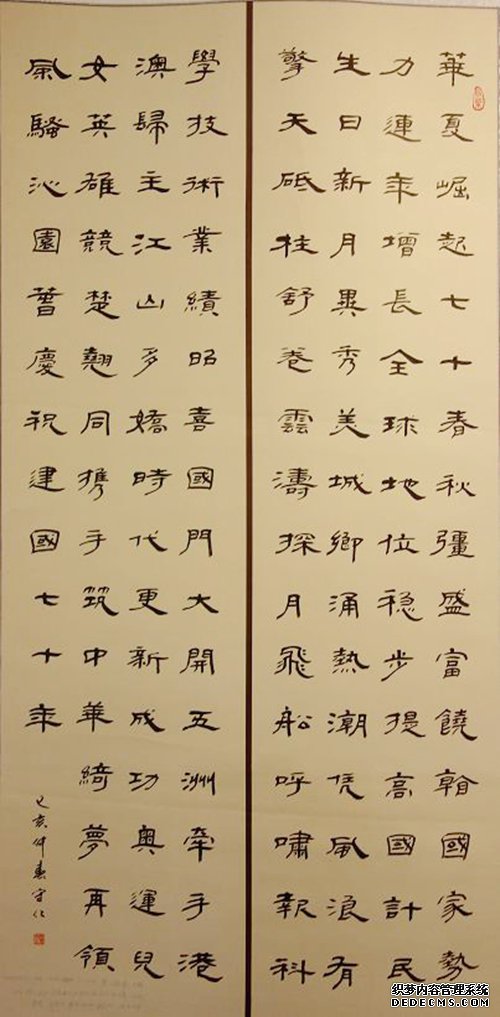 華夏崛起七十春秋彊盛富饒看國家勢
力連年增長全球地位穩步提高國計民
生日新月異秀美城鄉涌熱潮凭風浪有
擎天砥柱舒卷雲濤探月飛船呼嘯報科
學技術業績昭喜國門大開五洲牽手港
澳歸主江山多嬌時代更新成功奧運兒
女英雄競楚翹同携手筑中華綺夢再領
風騷沁園春慶祝建國七十年
己亥仲春守仁
织梦内容管理系统
DEDECMS.COM